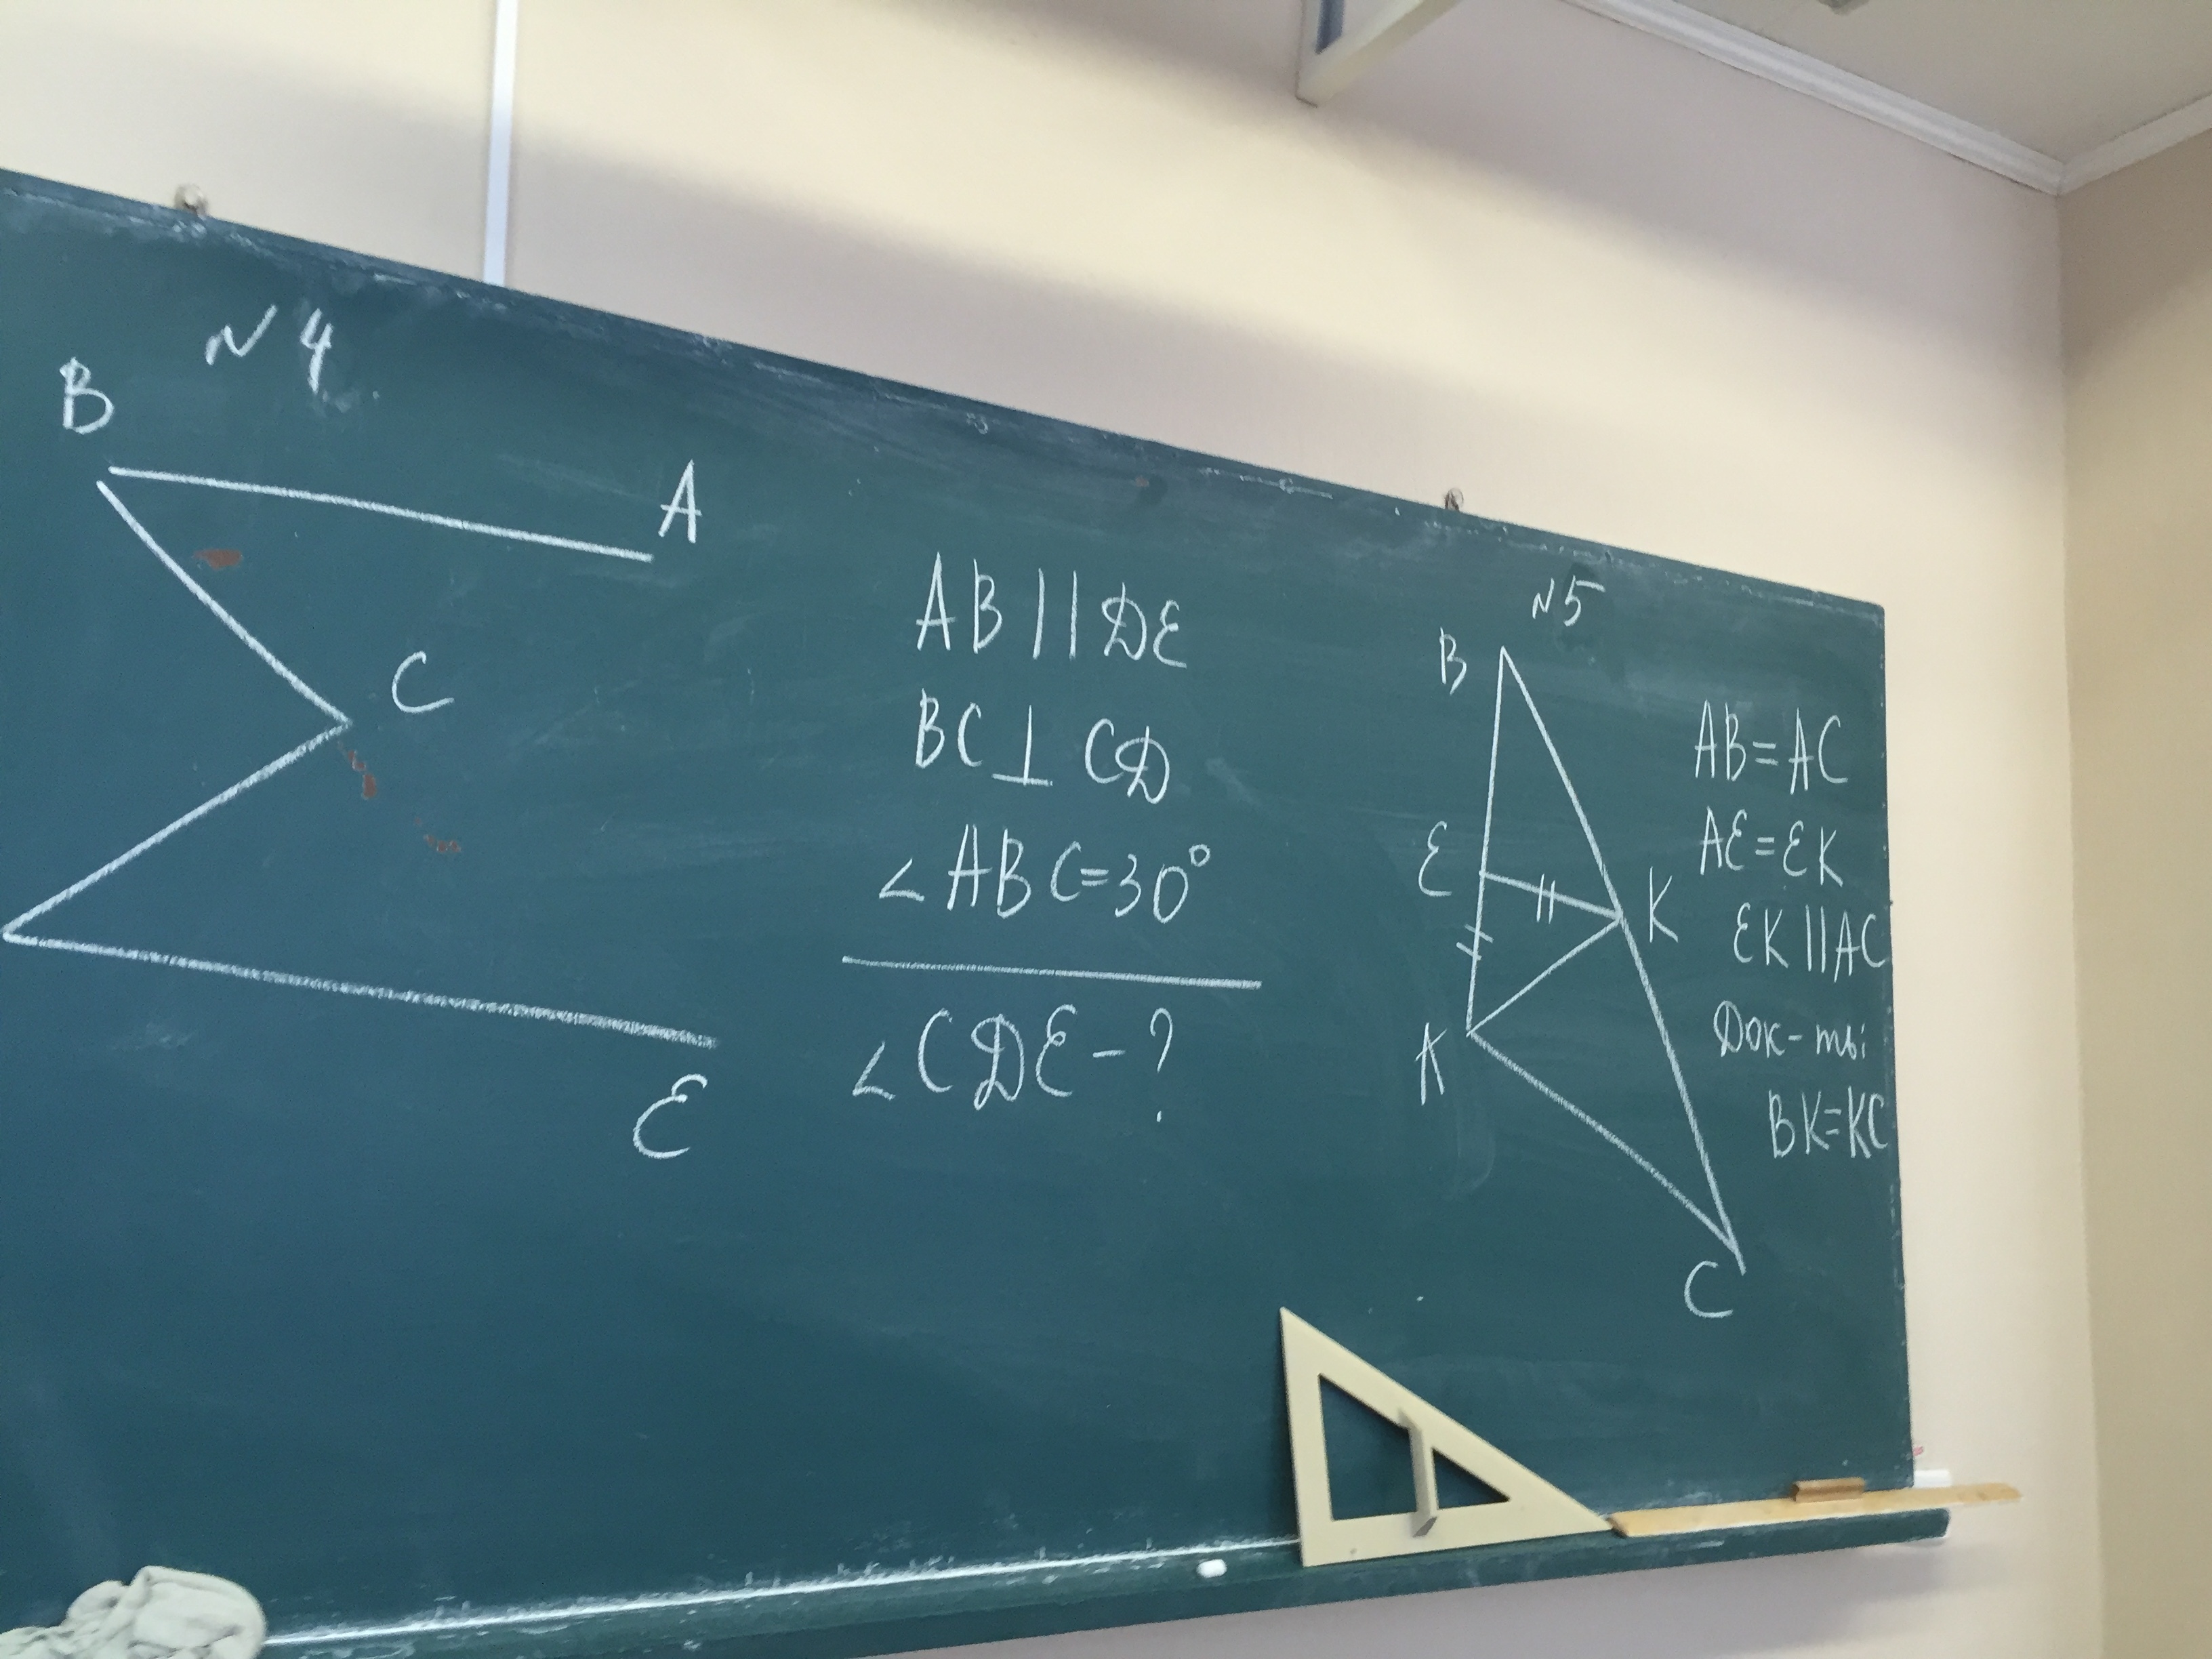 N4
B
A
C
E
AB || DE
BC ⊥ CD
∠ABC=30°
∠CDE-?
N5
B
E
K
A
C
AB=AC
AE=EK
EK || AC
Док-ть
BK=KC